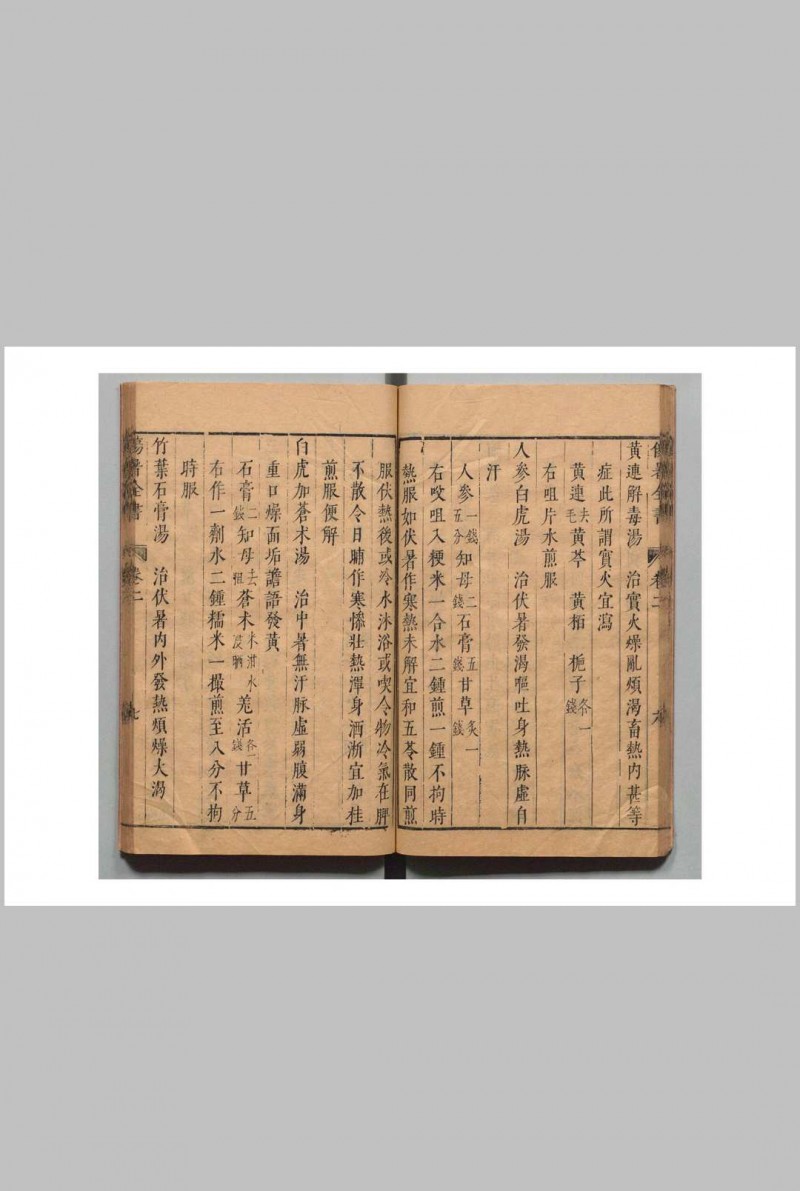 黃連解毒湯　治實火燥亂煩渴畜熱內甚等
症此所謂實火宜瀉
黃連去毛黃芩　黃栢　梔子各一錢
右咀片水煎服
人參白虎湯　治伏暑發渴嘔吐身熱脉虛自
汗
人參一錢五分知母二錢石膏五錢甘草炙一錢
右㕮咀入粳米一合水二鍾煎一鍾不拘時
熱服如伏暑作寒熱未解宜和五苓散同煎
服伏熱後或冷水沐浴或吃冷物冷氣在脾
不散令日晡作寒慘壯熱渾身洒淅宜加桂
煎服便解
白虎加蒼朮湯　治中暑無汗脉虛弱腹滿身
重口燥面垢譫語發黃
石膏二錢知母去粗蒼朮米泔水浸晒羌活各一錢甘草五分
右作一劑水二鍾糯米一撮煎至八分不拘
時服
竹葉石膏湯　治伏暑內外發熱煩燥大渴
傷暑全書　卷二　七